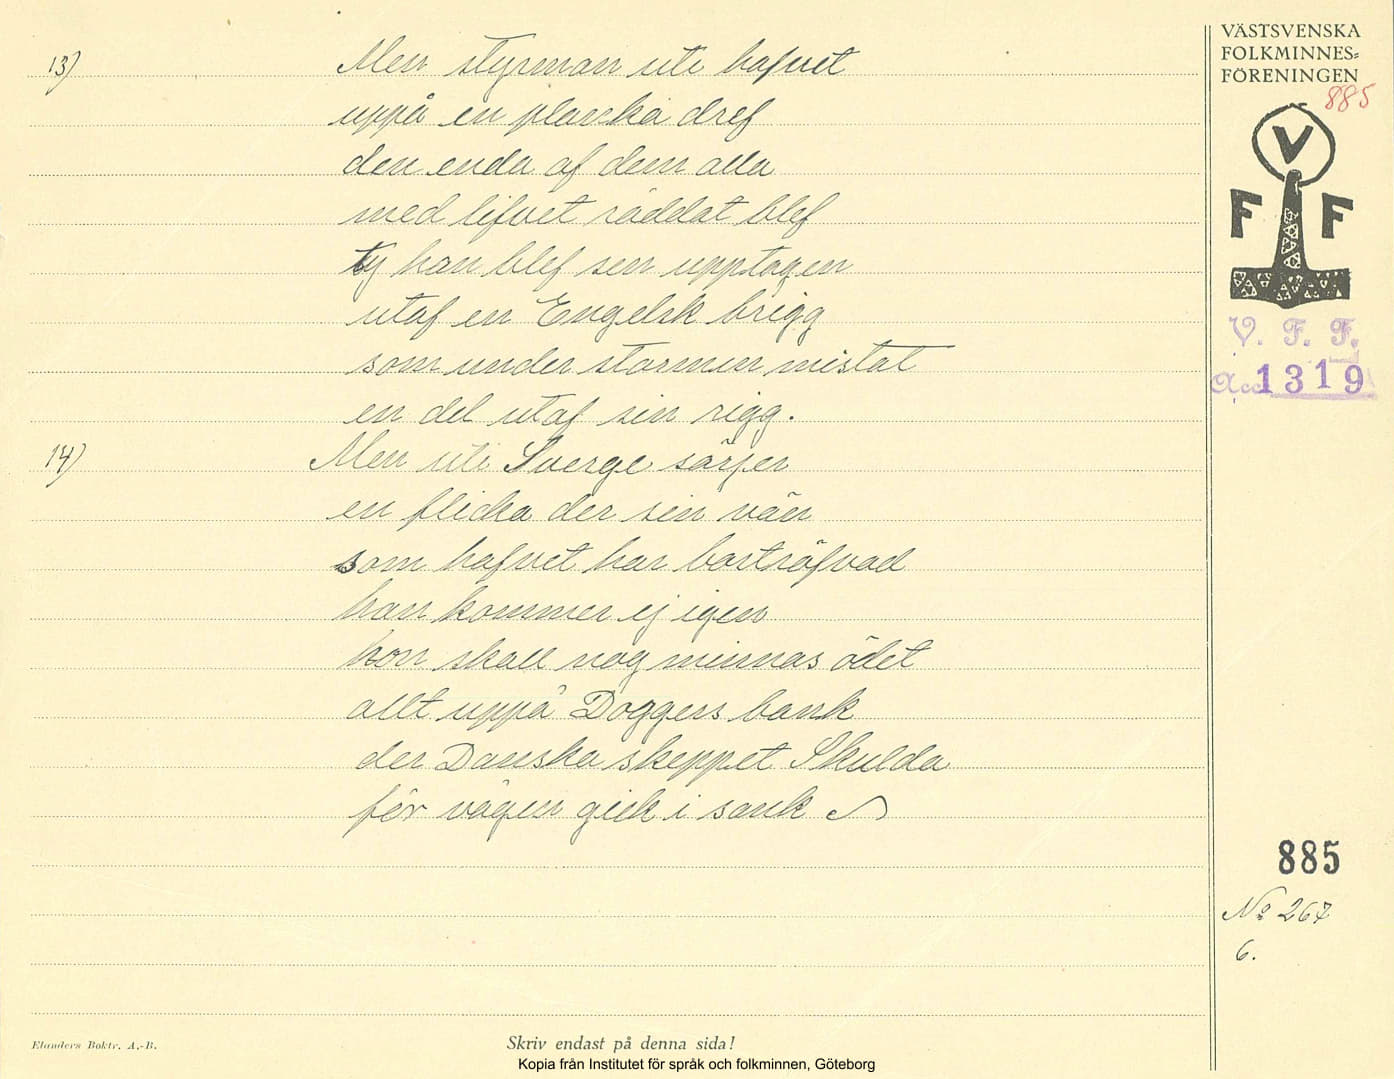 VÄSTSVENSKA
FOLKMINNES=
FÖRENINGEN
885
V
F F
V. F. F.
Acc 1319
13) Men styrman uti hafvet
uppå en planka dref
den enda af dem alla
med lifvet räddat blef
ty han blef sen upptagen
utaf en Engelsk brigg
som under stormen mistat
en del utaf sin rigg.
14) Men uti Sverge sörjer
en flicka der sin vän
som hafvet har bortröfvad
han kommer ej igen
hon skall nog minnas ödet
allt uppå Doggers bank
der Danska skeppet Skulda
för vågen gick i sank
885
No 267
6.
Elanders Boktr. A.-B.
Skriv endast på denna sida!
Kopia från Institutet för språk och folkminnen, Göteborg